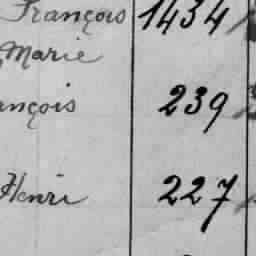 François 1434
Marie
ançois 239
Henri 227